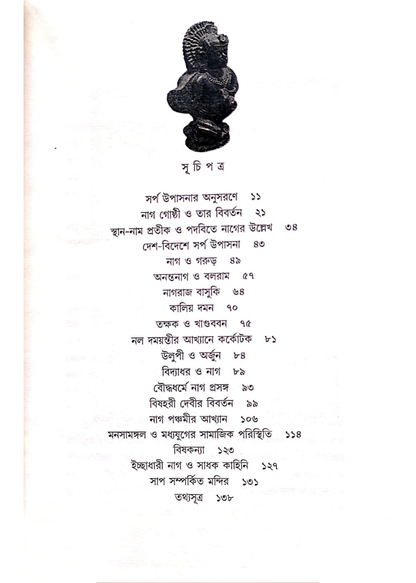 সূ চি প ত্র
সর্প উপাসনার অনুসরণে ১১
নাগ গোষ্ঠী ও তার বিবর্তন ২১
স্থান-নাম প্রতীক ও পদবিতে নাগের উল্লেখ ৩৪
দেশ-বিদেশে সর্প উপাসনা ৪৩
নাগ ও গরুড় ৪৯
অনন্তনাগ ও বলরাম ৫৭
নাগরাজ বাসুকি ৬৪
কালিয় দমন ৭০
তক্ষক ও খাণ্ডববন ৭৫
নল দময়ন্তীর আখ্যানে কর্কোটক ৮১
উলুপী ও অর্জুন ৮৪
বিদ্যাধর ও নাগ ৮৯
বৌদ্ধধর্মে নাগ প্রসঙ্গ ৯৩
বিষহরী দেবীর বিবর্তন ৯৯
নাগ পঞ্চমীর আখ্যান ১০৬
মনসামঙ্গল ও মধ্যযুগের সামাজিক পরিস্থিতি ১১৪
বিষকন্যা ১২৩
ইচ্ছাধারী নাগ ও সাধক কাহিনি ১২৭
সাপ সম্পর্কিত মন্দির ১৩১
তথ্যসূত্র ১৩৮